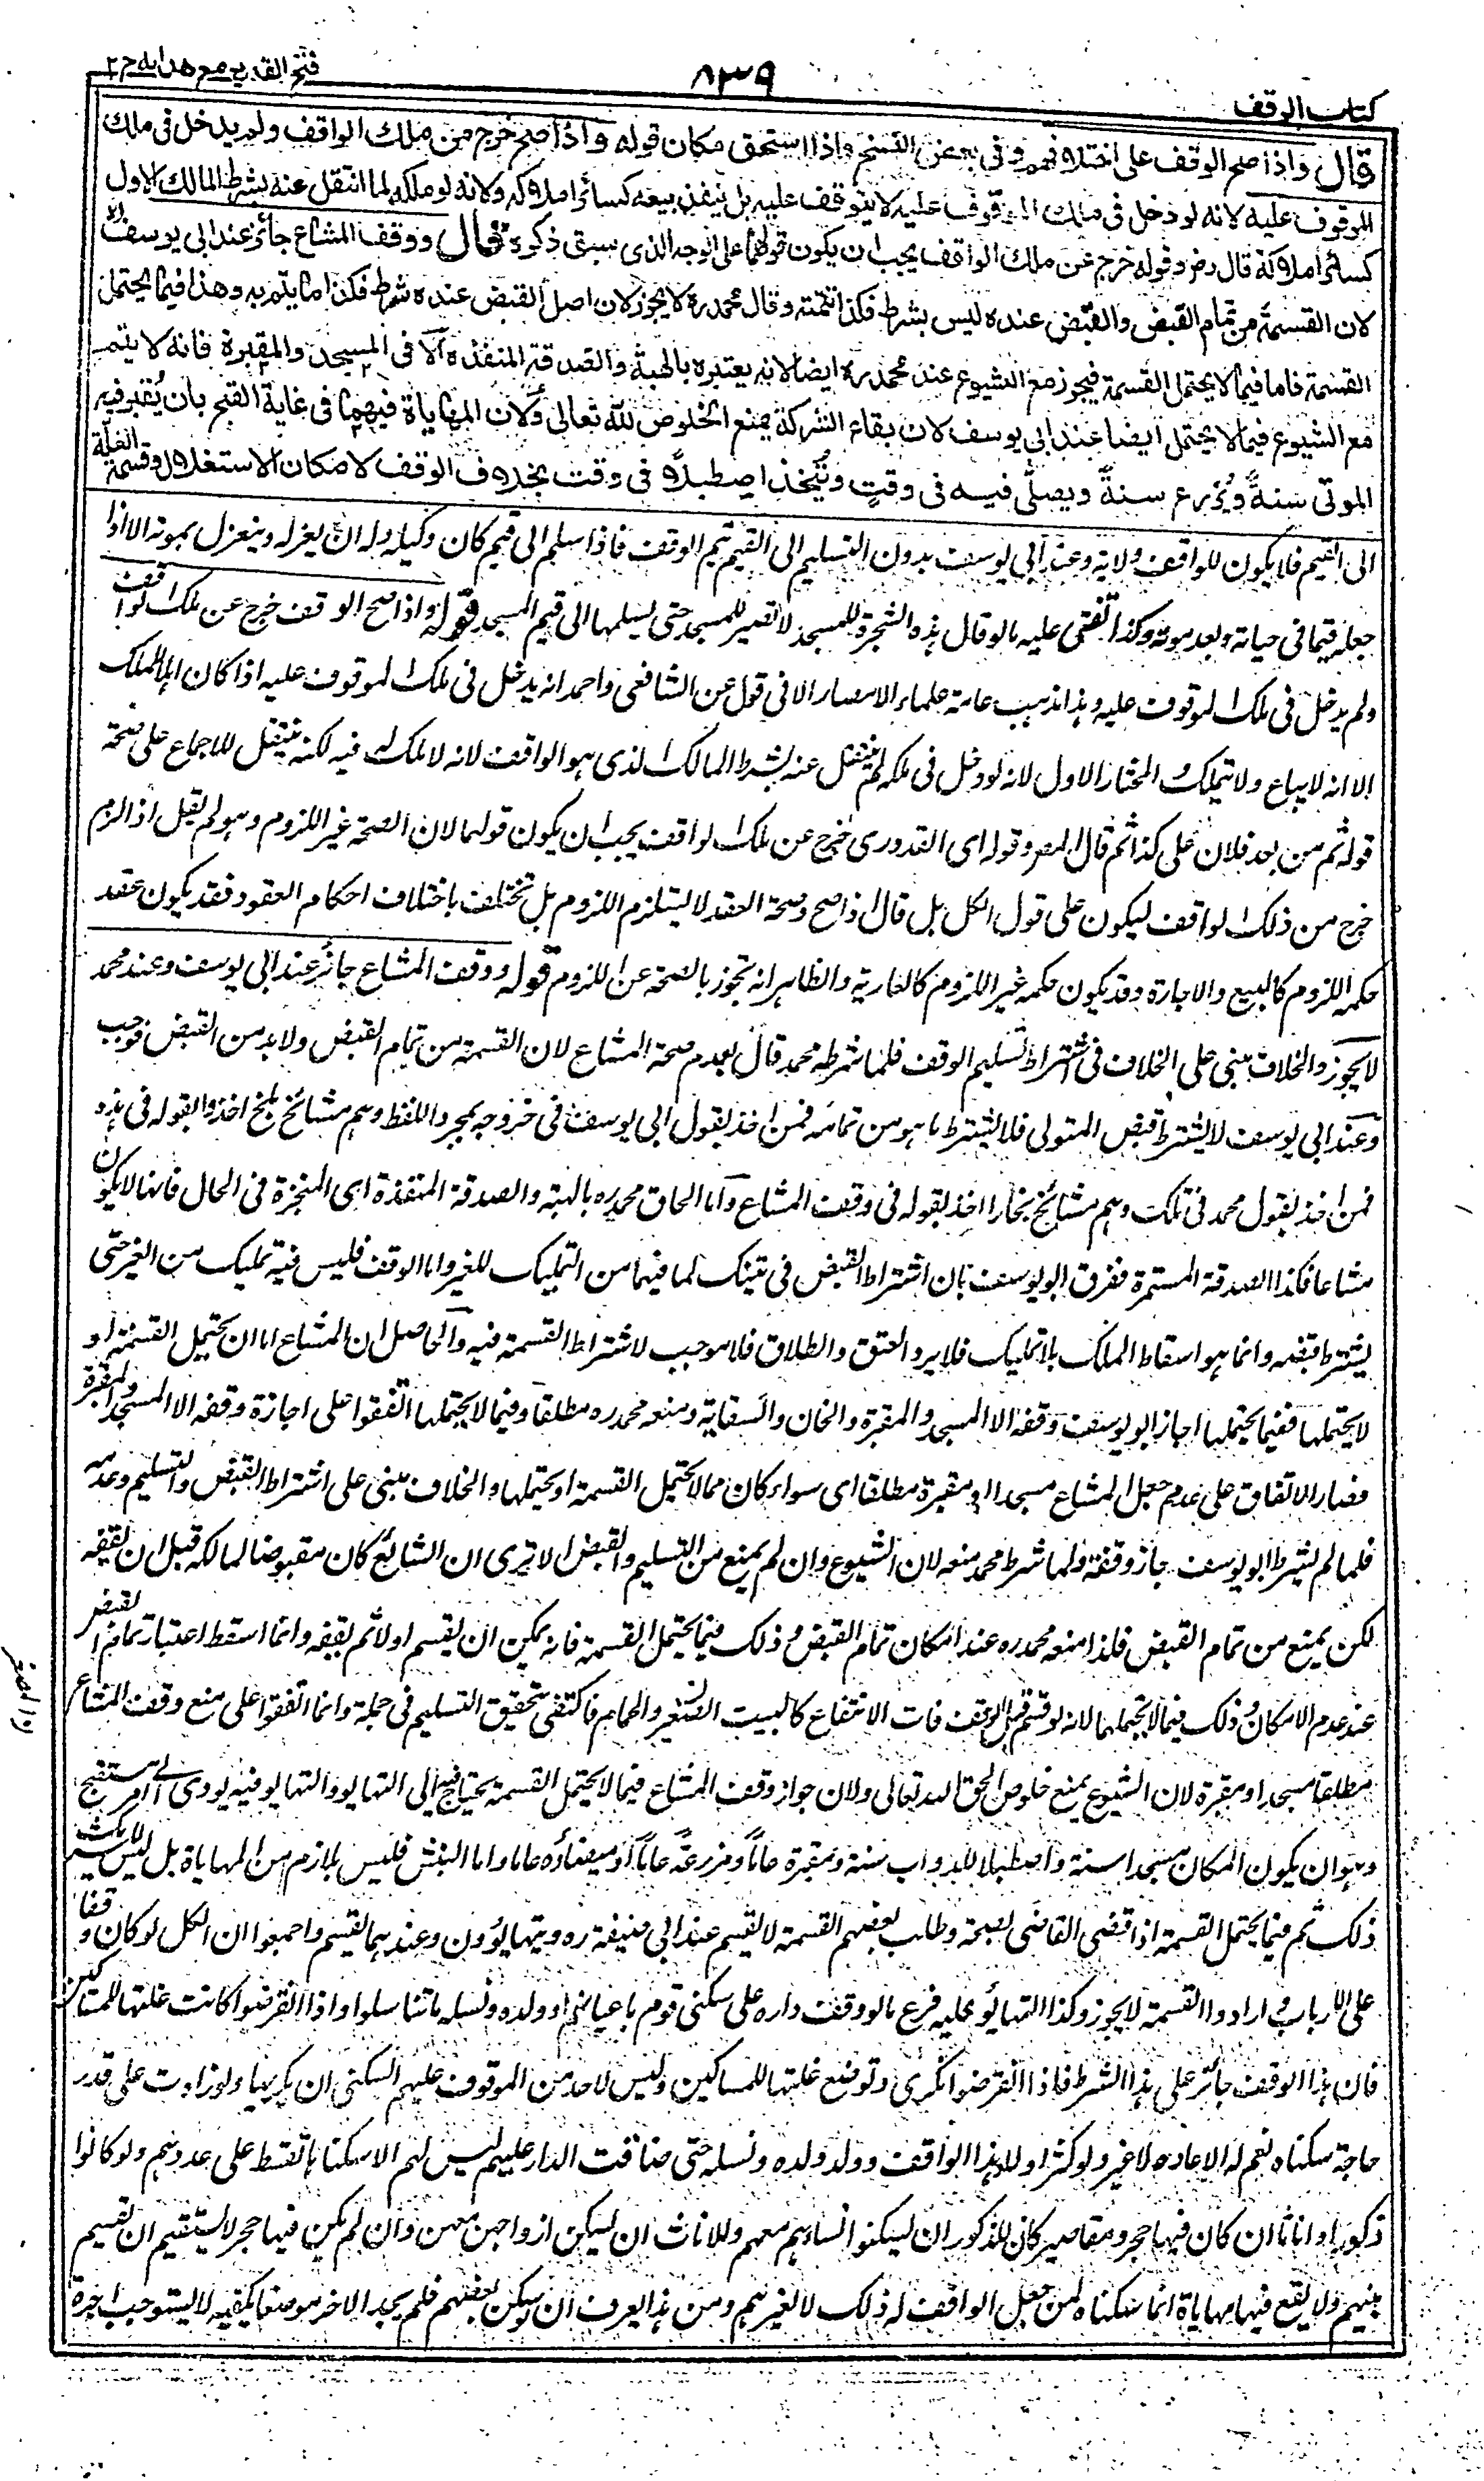 كتاب الوقف
٨٣٩
فتح القدير مع هدايه ج ٢
قال واذا صح الوقف على اختلافهم وفى بعض النسخ واذا استحق مكان قوله واذا صح خرج من ملك الواقف ولم يدخل فى ملك
الموقوف عليه لانه لو دخل فى ملك الموقوف عليه لا يتوقف عليه بل ينفذ بيعه كسائر املاكه ولانه لو ملكه لما انتقل عنه بشرط المالك الاول
كسائر املاكه قال رض وقوله خرج عن ملك الواقف يجب ان يكون قولهما على الوجه الذى سبق ذكره قال ووقف المشاع جائز عند ابى يوسف
لان القسمة من تمام القبض والقبض عنده ليس بشرط فكذا تتمته وقال محمد ره لا يجوز لان اصل القبض عنده شرط فكذا ما يتم به وهذا فيما يحتمل
القسمة فاما فيما لا يحتمل القسمة فيجوز مع الشيوع عند محمد ره ايضا لانه يعتبره بالهبة والصدقة المنفذة الا فى المسجد والمقبرة فانه لا يتم
مع الشيوع فيما لا يحتمل ايضا عند ابى يوسف لان بقاء الشركة يمنع الخلوص لله تعالى ولان المهاياة فيهما فى غاية القبح بان يقبر فيه
الموتى سنة ويزرع سنة ويصلى فيه فى وقت ويتخذ اصطبلا فى وقت بخلاف الوقف لامكان الاستغلال وقسمة الغلة
الى القيم فلا يكون للواقف ولاية وعند ابى يوسف بدون التسليم الى القيم تم الوقف فاذا سلم الى قيم كان وكيله وله ان يعزله وينعزل بموته الا اذا
جعله قيما فى حياته وبعد موته وكذا اتفقى عليه مالو قال هذه الشجرة للمسجد لا تصير للمسجد حتى يسلمها الى قيم المسجد قوله واذا صح الوقف خرج عن ملك الواقف
ولم يدخل فى ملك الموقوف عليه وهذا مذهب عامة علماء الامصار الا فى قول عن الشافعى واحمد انه يدخل فى ملك الموقوف عليه اذا كان اهلا للملك
الا انه لا يباع ولا يتملك والمختار الاول لانه لو دخل فى ملكه لم ينتقل عنه بشرط المالك الذى هو الواقف لانه لا ملك له فيه لكنه ينتقل للاجماع على صحة
قوله ثم من بعد فلان على كذا ثم قال المص وقوله اى القدورى خرج عن ملك الواقف يجب ان يكون قولهما لان الصحة غير اللزوم وهو لم يقل اذا لزم
خرج من ذلك الواقف ليكون على قول الكل بل قال اذا صح وصحة العقد لا يستلزم اللزوم بل تختلف باختلاف احكام العقود فقد يكون عقد
حكمه اللزوم كالبيع والاجارة وقد يكون حكمه غير اللزوم كالعارية والظاهر انه تجوز بالصحة عن اللزوم قوله ووقف المشاع جائز عند ابى يوسف وعند محمد
لا يجوز والخلاف مبنى على الخلاف فى اشتراط تسليم الوقف فلما شرطه محمد قال بعدم صحة المشاع لان القسمة من تمام القبض ولا بد من القبض فوجب
وعند ابى يوسف لا يشترط قبض المتولى فلا يشترط ما هو من تمامه فمن اخذ بقول ابى يوسف فى خروجه بمجرد اللفظ وهم مشائخ بلخ اخذوا بقوله فى هذه
فمن اخذ بقول محمد فى تلك وهم مشائخ بخارا اخذ بقوله فى وقف المشاع واما الحاق محمد ره بالهبة والصدقة المنفذة اى المنجزة فى الحال فانها لا يكون
مشاعا فكذا الصدقة المستمرة ففرق ابو يوسف بان اشتراط القبض فى تينك لما فيهما من التمليك للغير واما الوقف فليس فيه تمليك من الغير حتى
يشترط قبضه وانما هو اسقاط الملك بلا تمليك فلا يرد العتق والطلاق فلا موجب لاشتراط القسمة فيه والحاصل ان المشاع اما ان يحتمل القسمة او
لا يحتملها ففيما يحتملها اجاز ابو يوسف وقفه الا المسجد والمقبرة والخان والسقاية ومنعه محمد ره مطلقا وفيما لا يحتملها اتفقوا على اجازة وقفه الا المسجد والمقبرة
فصار الاتفاق على عدم جعل المشاع مسجدا او مقبرة مطلقا اى سواء كان مما لا يحتمل القسمة او يحتملها والخلاف مبنى على اشتراط القبض والتسليم وعدمه
فلما لم يشترط ابو يوسف جاز وقفه ولما شرط محمد منعه لان الشيوع وان لم يمنع من التسليم والقبض الا ترى ان الشائع كان مقبوضا لمالكه قبل ان يقفه
لكن يمنع من تمام القبض فلذا منعه محمد ره عند امكان تمام القبض وذلك فيما يحتمل القسمة فانه يمكن ان يقسم اولا ثم يقفه وانما اسقط اعتبار تمام القبض
عند عدم الامكان وذلك فيما لا يحتملها لانه لو قسم قبل الوقف فات الانتفاع كالبيت الصغير والحمام فاكتفى بتحقيق التسليم فى جملة وانما اتفقوا على منع وقف المشاع
مطلقا مسجدا او مقبرة لان الشيوع يمنع خلوص الحق لله تعالى ولان جواز وقف المشاع فيما لا يحتمل القسمة يحتاج فيه الى التهايو والتهايو فيه يودى الى امر مستقبح
وهو ان يكون المكان مسجدا سنة واصطبلا للدواب سنة ومقبرة عاما ومزرعة عاما او ميضأة عاما واما النبش فليس بلازم من المهاياة بل ليس
ذلك ثم فيما يحتمل القسمة اذا قضى القاضى بصحة وطلب بعضهم القسمة لا يقسم عند ابى حنيفة ره ويتهايؤون وعندهما يقسم واجمعوا ان الكل لو كان وقفا
على الارباب وارادوا القسمة لا يجوز وكذا التهايؤ عليه فرع مالو وقف داره على سكنى قوم باعيانهم او ولده ونسله ما تناسلوا واذا انقرضوا كانت غلتها للمساكين
فان هذا الوقف جائز على هذا الشرط فاذا انقرضوا تكرى وتوضع غلتها للمساكين وليس لاحد من الموقوف عليهم السكنى ان يكريها ولو زادت على قدر
حاجة سكناه نعم له الاعارة لا غير ولو كثر اولاد هذا الواقف وولد ولده ونسله حتى ضاقت الدار عليهم ليس لهم الا سكناها تقسط على عددهم ولو كانوا
ذكورا واناثا ان كان فيها حجر ومقاصير كان للذكور ان يسكنوا نساءهم معهم وللاناث ان يسكن ازواجهن معهن وان لم يكن فيها حجر لا يستقيم ان تقسيم
بينهم ولا يقع فيها مهاياة انما سكناه لمن جعل الواقف له ذلك لا لغيرهم ومن هذا يعرف ان لو سكن بعضهم فلم يجد الاخر موضعا يكفيه لا يستوجب اجرة